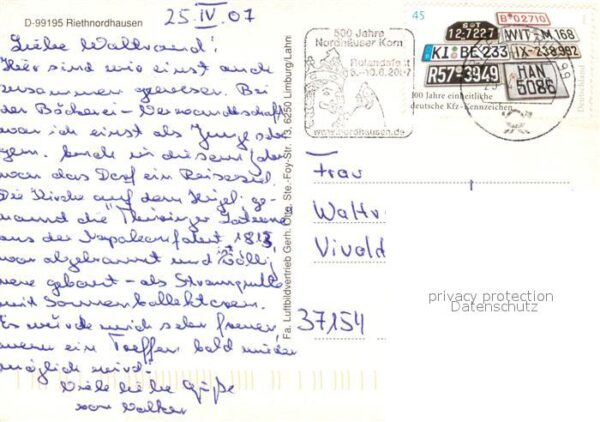 D-99195 Riethnordhausen
25.IV.07
Liebe Waltraud!
Hier sind wir einst auch
zusammen gewesen. Bei
der Bäckerei-Verwandtschaft
war ich einst als Junge sehr
gern. Auch in diesem Jahr
war das Dorf ein Reiseziel.
Die Kirche auf dem Hügel, ge-
nannt die "Thüringer Laterne"
aus der Napoleonfahrt 1813,
war abgebrannt und völlig
neu gebaut - als
mit Sonnenkollektoren.
Es würde mich sehr freuen,
wenn ein Treffen bald wieder
möglich wird!
Viele liebe Grüße
von Volker
Fa. Luftbildvertrieb Gerh. Otto, Ste.-Foy-Str. 13, 6250 Limburg/Lahn
500 Jahre
Nordhäuser Korn
Rolandsfest
8.-10.6.2007
www.nordhausen.de
45
B·02710
12-7227
WIT-M 168
KI BE 233
IX-238.992
R57-3949
HAN
5086
100 Jahre einheitliche
deutsche Kfz-Kennzeichen
Deutschland
Frau
Waltr
Vivald
37154
privacy protection
Datenschutz